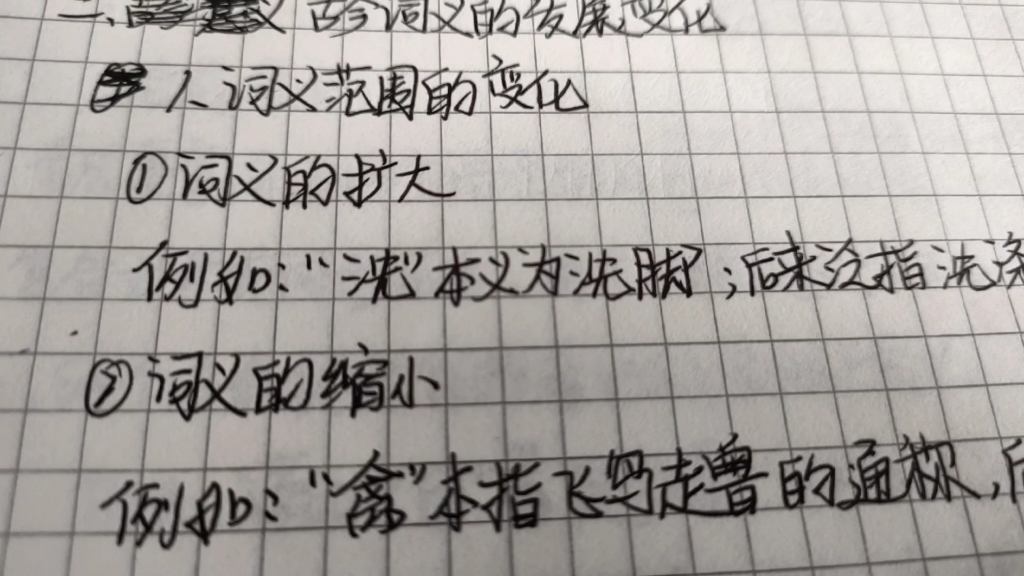 二、义古今词义的发展变化
1、词义范围的变化
①词义的扩大
例如:“洗”本义为洗脚;后来泛指洗涤
②词义的缩小
例如:“禽”本指飞鸟走兽的通称,后